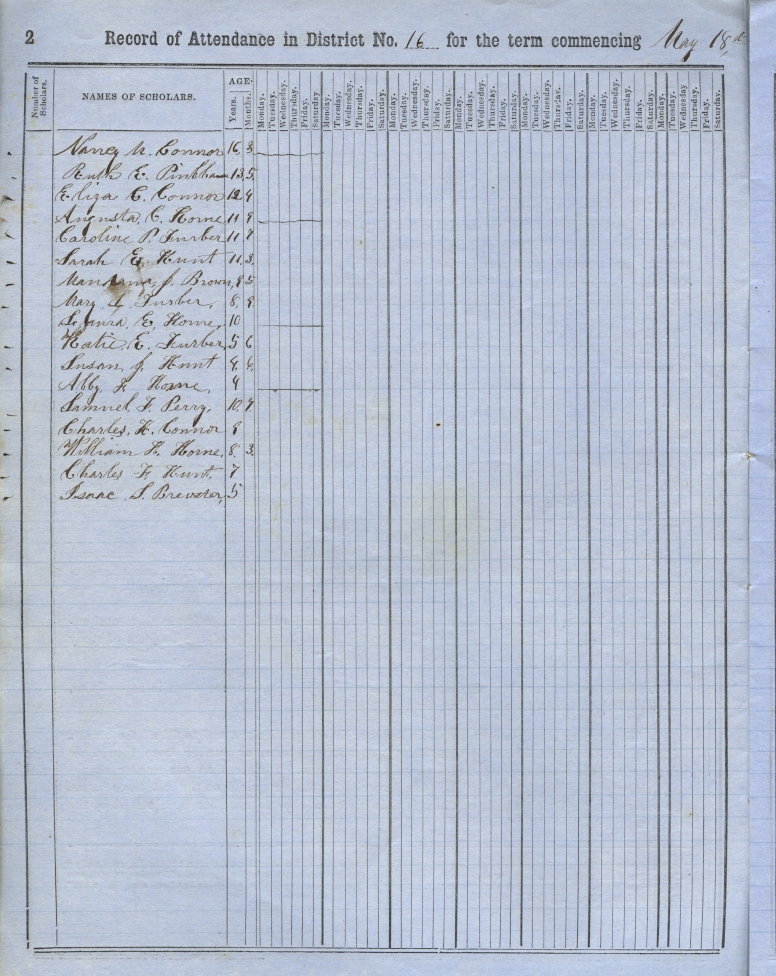 2 Record of Attendance in District No. 16 for the term commencing May 18,
Number of Scholars.
NAMES OF SCHOLARS.
AGE.
Years. Months. Monday. Tuesday. Wednesday. Thursday. Friday. Saturday Monday. Tuesday. Wednesday. Thursday. Friday. Saturday. Monday. Tuesday. Wednesday. Thursday. Friday. Saturday. Monday. Tuesday. Wednesday. Thursday. Friday. Saturday. Monday. Tuesday. Wednesday. Thursday. Friday. Saturday. Monday. Tuesday. Wednesday. Thursday. Friday. Saturday. Monday. Tuesday. Wednesday Thursday. Friday. Saturday.
Nancy N. Connor 16. 3.
Ruth E. Pinkham 13. 5.
Eliza C. Connor 12 4
Augusta C. Horne 11 9
Caroline P. Furber 11 7
Sarah E. Hunt 11. 3.
J. Brown, 8 5
Mary L. Furber, 8. 8.
E. Horne, 10
Katie E. Furber, 5 6
Susan J. Hunt 4. 6.
Abby F. Horne, 4
Samuel F. Perry, 10. 7
Charles H. Connor 8
William H. Horne, 8. 3.
Charles F. Hunt, 7
Isaac S. Brewster, 5